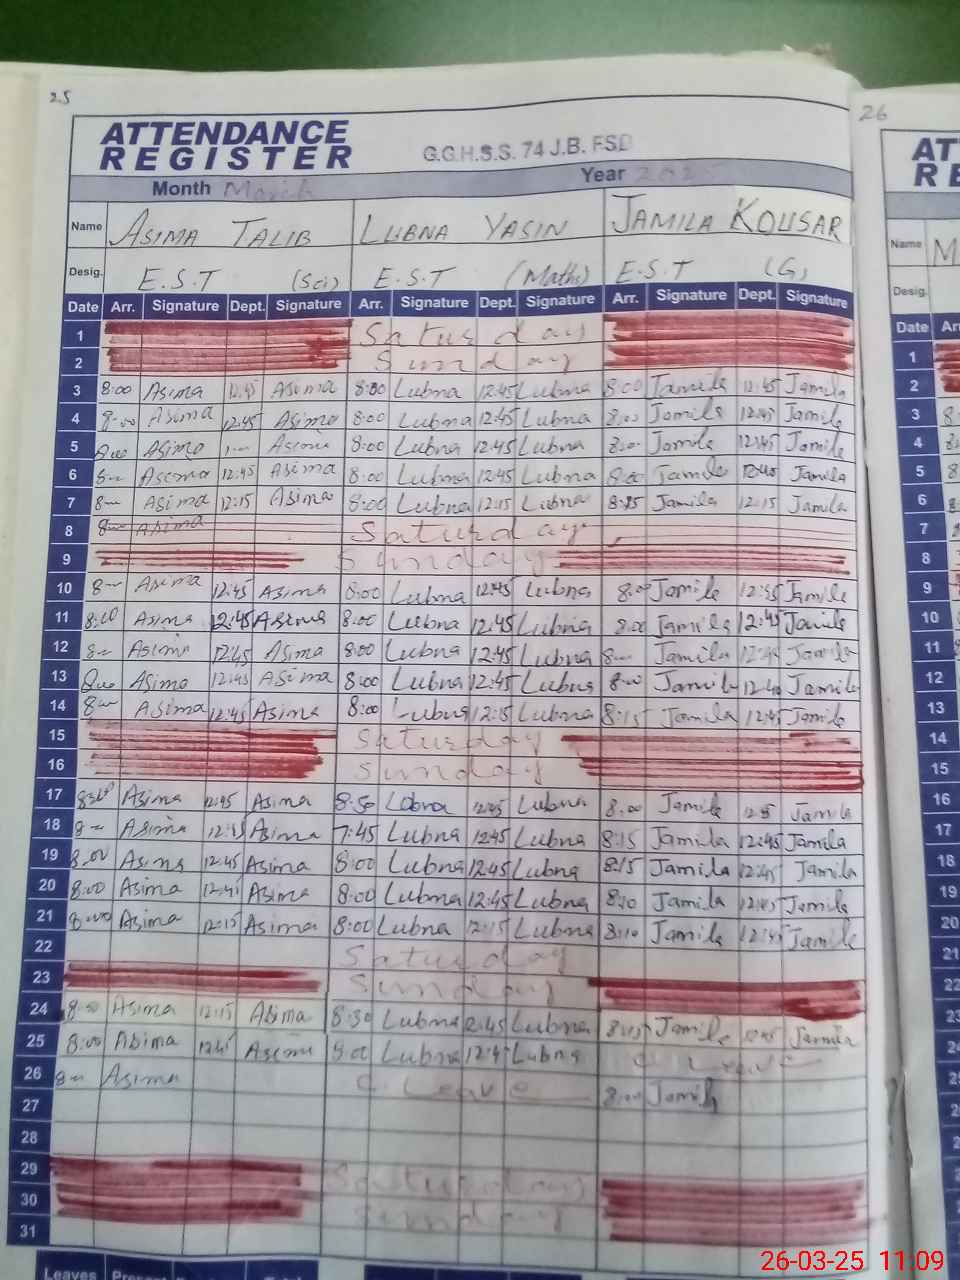 25
26
ATTENDANCE
REGISTER
G.G.H.S.S. 74 J.B. FSD
Month March Year 2025
Name ASIMA TALIB LUBNA YASIN JAMILA KOUSAR
Desig. E.S.T (Sci) E.S.T (Maths) E.S.T (G)
Date Arr. Signature Dept. Signature Arr. Signature Dept. Signature Arr. Signature Dept. Signature
1 Saturday
2 Sunday
3 8:00 Asima 12:45 Asima 8:00 Lubna 12:45 Lubna 8:00 Jamila 12:45 Jamila
4 8:00 Asima 12:45 Asima 8:00 Lubna 12:45 Lubna 8:00 Jamila 12:45 Jamila
5 Asima Asima 8:00 Lubna 12:45 Lubna 8:00 Jamila 12:45 Jamila
6 Asima 12:45 Asima 8:00 Lubna 12:45 Lubna 8:00 Jamila Jamila
7 Asima 12:15 Asima 8:00 Lubna 12:15 Lubna 8:15 Jamila 12:15 Jamila
8 Asima Saturday
9 Sunday
10 Asima 12:45 Asima 8:00 Lubna 12:45 Lubna 8:00 Jamila 12:45 Jamila
11 8:00 Asima 12:45 Asima 8:00 Lubna 12:45 Lubna 8:00 Jamila 12:45 Jamila
12 Asima 12:45 Asima 8:00 Lubna 12:45 Lubna Jamila 12:45 Jamila
13 Asima 12:45 Asima 8:00 Lubna 12:45 Lubna 8:00 Jamila 12:40 Jamila
14 Asima 12:45 Asima 8:00 Lubna 12:15 Lubna 8:15 Jamila 12:45 Jamila
15 Saturday
16 Sunday
17 Asima 12:45 Asima 8:50 Lubna 12:45 Lubna 8:00 Jamila Jamila
18 Asima Asima 7:45 Lubna 12:45 Lubna 8:15 Jamila 12:45 Jamila
19 8:00 Asima 12:45 Asima 8:00 Lubna 12:45 Lubna 8:15 Jamila 12:45 Jamila
20 8:00 Asima Asima 8:00 Lubna 12:45 Lubna 8:10 Jamila 12:45 Jamila
21 8:00 Asima 12:15 Asima 8:00 Lubna 12:15 Lubna 8:10 Jamila 12:45 Jamila
22 Saturday
23 Sunday
24 Asima 12:15 Asima 8:30 Lubna 12:45 Lubna 8:15 Jamila Jamila
25 8:00 Asima Asima Lubna Lubna C Leave
26 Asima C Leave 8:00 Jamila
27
28
29 Saturday
30 Sunday
31
Leaves Present
Name M
Desig.
Date
1
2
3
4
5
6
7
8
9
10
11
12
13
14
15
16
17
18
19
20
21
22
23
26-03-25 11:09